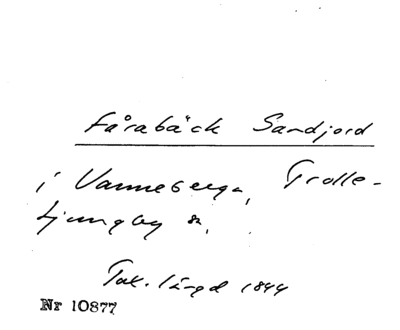 Fårabäck Sandjord
i Vanneberga, Trolle-
Ljungby sn,
Tax. längd 1844
Nr 10877